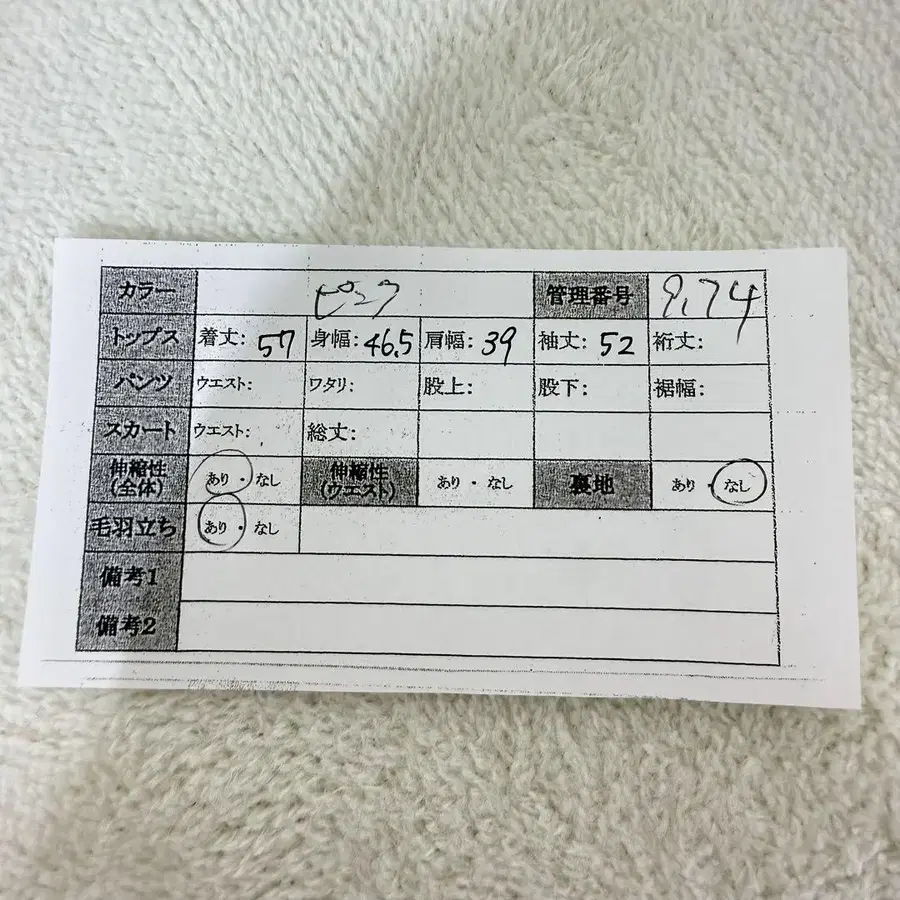 カラー ピンク 管理番号 9.74
トップス 着丈: 57 身幅: 46.5 肩幅: 39 袖丈: 52 裄丈:
パンツ ウエスト: ワタリ: 股上: 股下: 裾幅:
スカート ウエスト: 総丈:
伸縮性(全体) あり・なし 伸縮性(ウエスト) あり・なし 裏地 あり・なし
毛羽立ち あり・なし
備考1
備考2